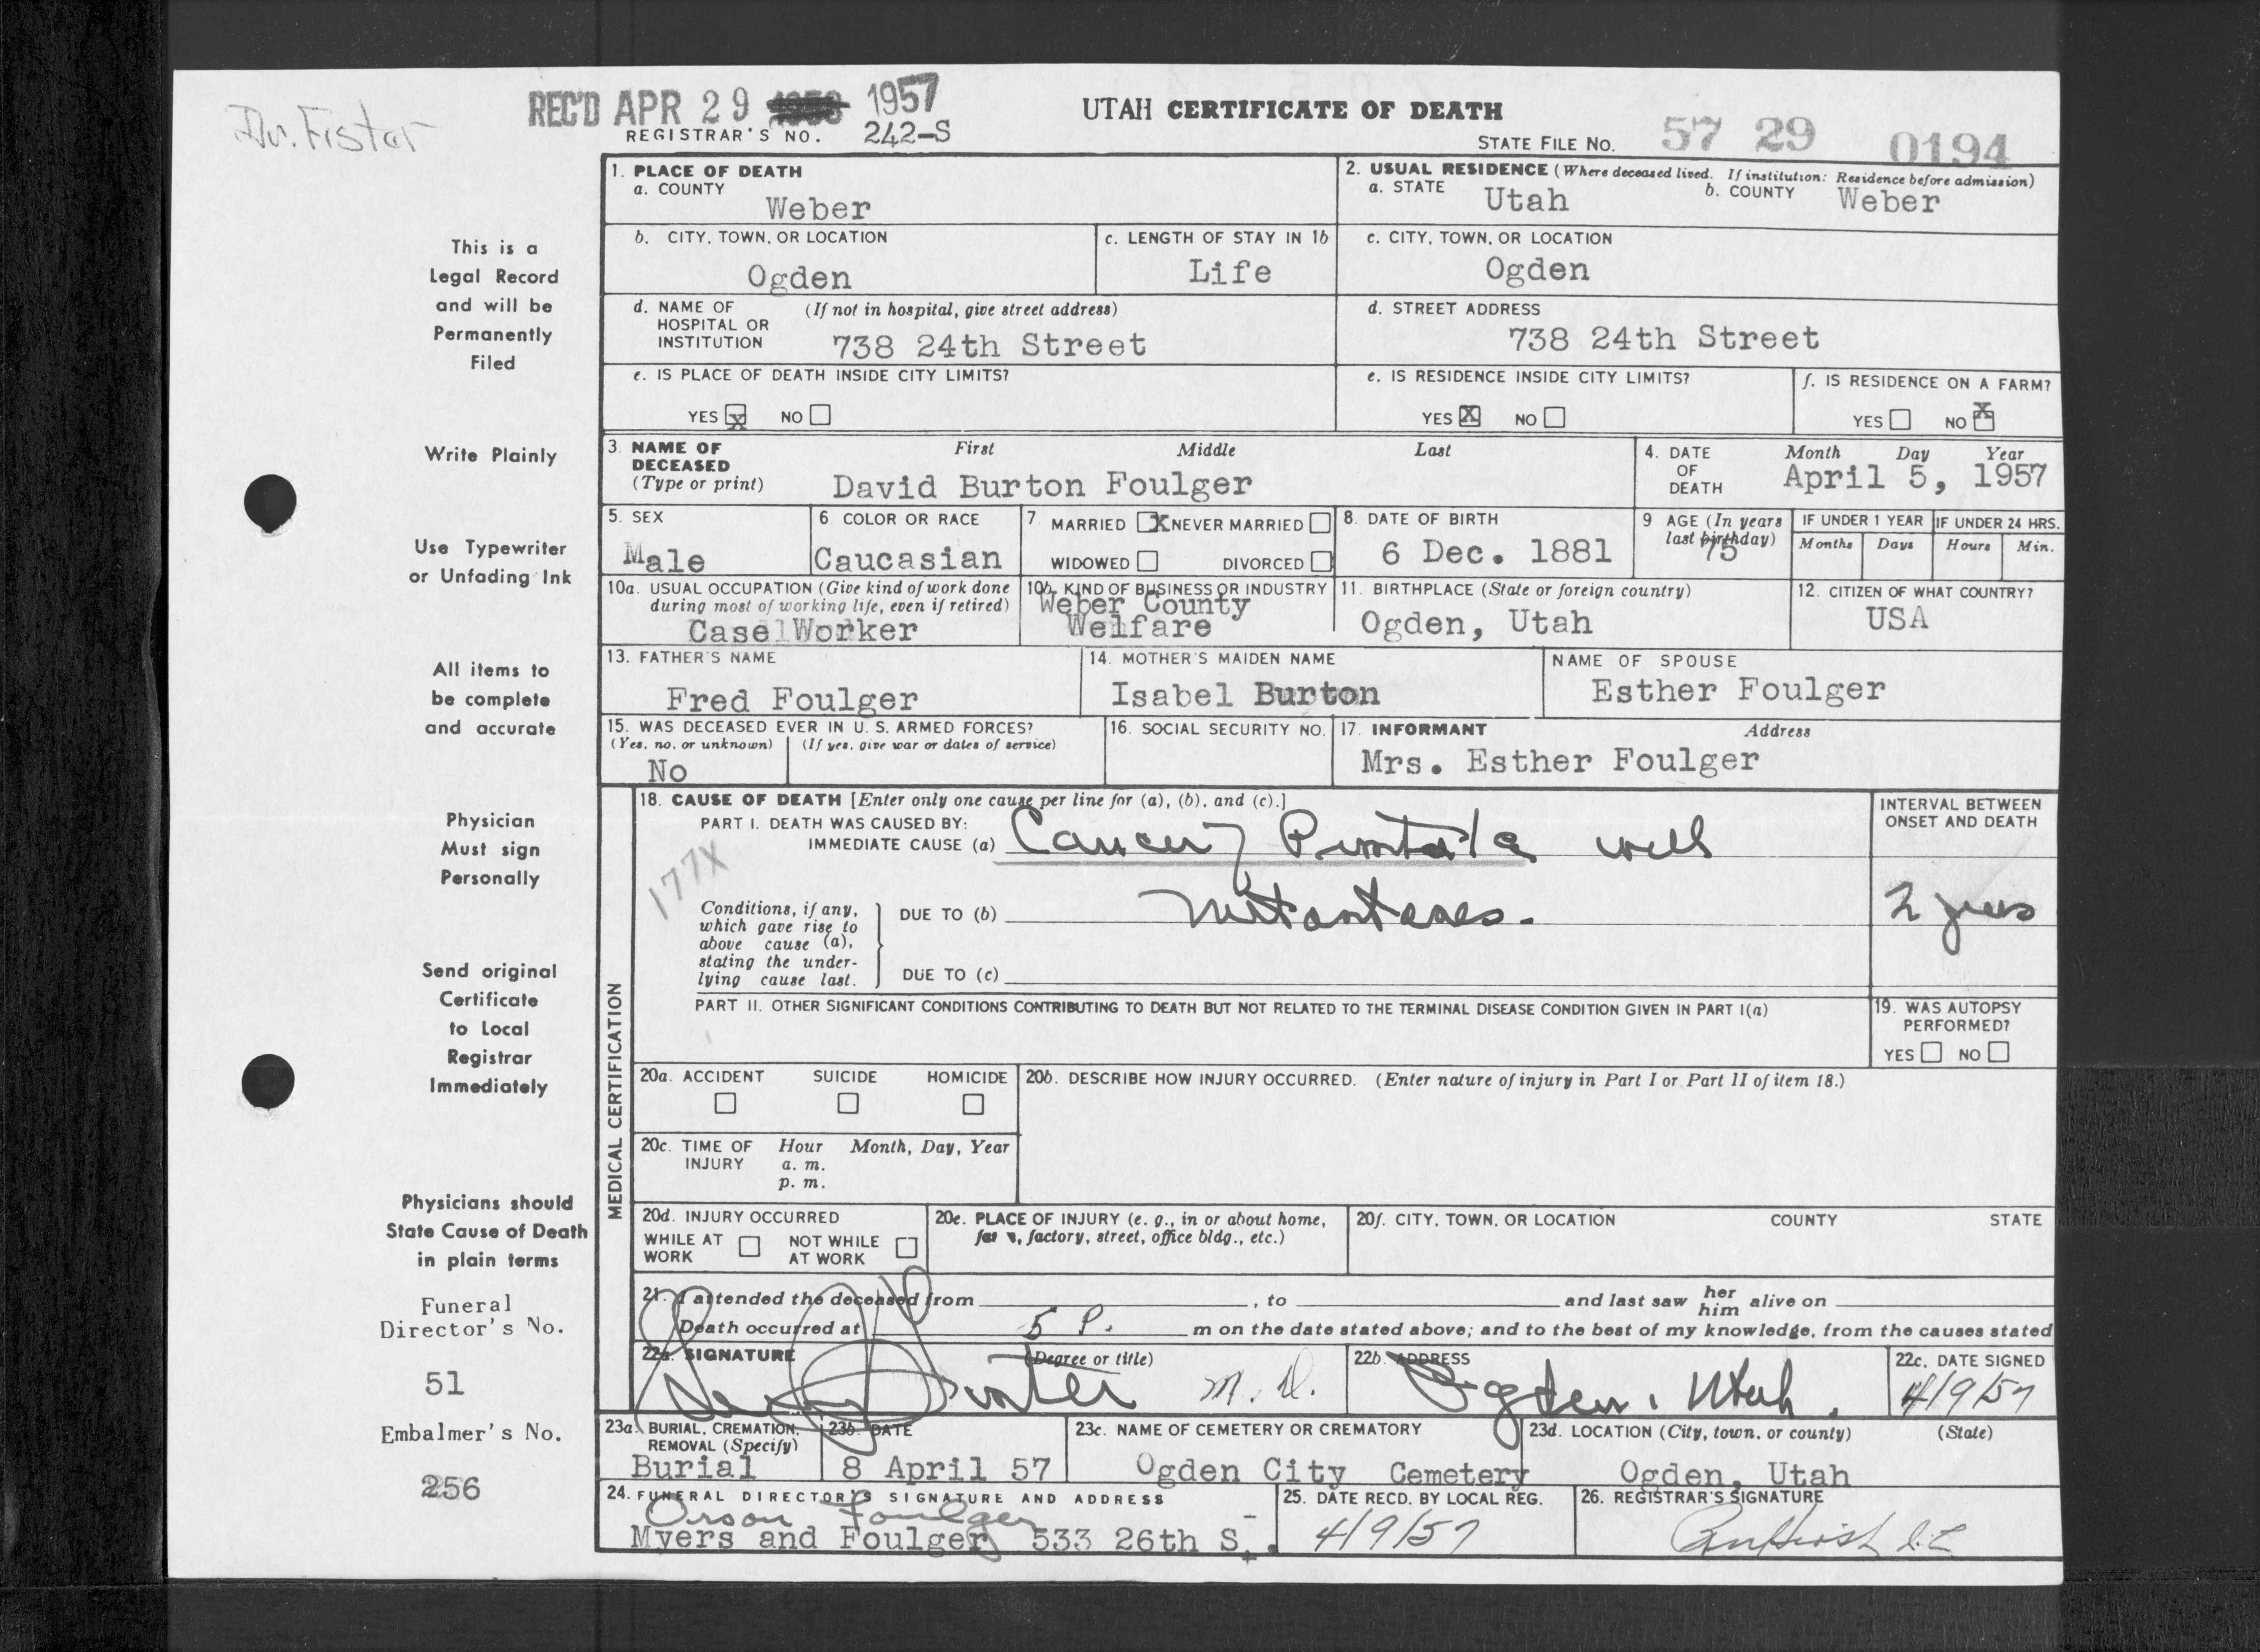 Dr. Fister
REC'D APR 29 1957
REGISTRAR'S NO. 242-S
UTAH CERTIFICATE OF DEATH
STATE FILE NO. 57 29 0194
This is a
Legal Record
and will be
Permanently
Filed
Write Plainly
Use Typewriter
or Unfading Ink
All items to
be complete
and accurate
Physician
Must sign
Personally
Send original
Certificate
to Local
Registrar
Immediately
Physicians should
State Cause of Death
in plain terms
Funeral
Director's No.
51
Embalmer's No.
256
1. PLACE OF DEATH
a. COUNTY
Weber
2. USUAL RESIDENCE (Where deceased lived. If institution: Residence before admission)
a. STATE Utah b. COUNTY Weber
b. CITY, TOWN, OR LOCATION
Ogden
c. LENGTH OF STAY IN 1b
Life
c. CITY, TOWN, OR LOCATION
Ogden
d. NAME OF (If not in hospital, give street address)
HOSPITAL OR
INSTITUTION 738 24th Street
d. STREET ADDRESS
738 24th Street
e. IS PLACE OF DEATH INSIDE CITY LIMITS?
YES X NO
e. IS RESIDENCE INSIDE CITY LIMITS?
YES X NO
f. IS RESIDENCE ON A FARM?
YES NO X
3. NAME OF First Middle Last
DECEASED
(Type or print) David Burton Foulger
4. DATE Month Day Year
OF
DEATH April 5, 1957
5. SEX
Male
6. COLOR OR RACE
Caucasian
7. MARRIED X NEVER MARRIED
WIDOWED DIVORCED
8. DATE OF BIRTH
6 Dec. 1881
9. AGE (In years
last birthday)
75
IF UNDER 1 YEAR
Months Days
IF UNDER 24 HRS.
Hours Min.
10a. USUAL OCCUPATION (Give kind of work done
during most of working life, even if retired)
Case Worker
10b. KIND OF BUSINESS OR INDUSTRY
Weber County
Welfare
11. BIRTHPLACE (State or foreign country)
Ogden, Utah
12. CITIZEN OF WHAT COUNTRY?
USA
13. FATHER'S NAME
Fred Foulger
14. MOTHER'S MAIDEN NAME
Isabel Burton
NAME OF SPOUSE
Esther Foulger
15. WAS DECEASED EVER IN U. S. ARMED FORCES?
(Yes, no, or unknown) (If yes, give war or dates of service)
No
16. SOCIAL SECURITY NO.
17. INFORMANT Address
Mrs. Esther Foulger
MEDICAL CERTIFICATION
18. CAUSE OF DEATH [Enter only one cause per line for (a), (b), and (c).]
PART I. DEATH WAS CAUSED BY:
IMMEDIATE CAUSE (a) Cancer of Prostate with
177X
Conditions, if any,
which gave rise to
above cause (a),
stating the under-
lying cause last.
DUE TO (b) metastases.
DUE TO (c)
INTERVAL BETWEEN
ONSET AND DEATH
2 years
PART II. OTHER SIGNIFICANT CONDITIONS CONTRIBUTING TO DEATH BUT NOT RELATED TO THE TERMINAL DISEASE CONDITION GIVEN IN PART I(a)
19. WAS AUTOPSY
PERFORMED?
YES NO
20a. ACCIDENT SUICIDE HOMICIDE
20b. DESCRIBE HOW INJURY OCCURRED. (Enter nature of injury in Part I or Part II of item 18.)
20c. TIME OF Hour Month, Day, Year
INJURY a. m.
p. m.
20d. INJURY OCCURRED
WHILE AT NOT WHILE
WORK AT WORK
20e. PLACE OF INJURY (e. g., in or about home,
factory, street, office bldg., etc.)
20f. CITY, TOWN, OR LOCATION COUNTY STATE
21. I attended the deceased from , to and last saw her him alive on
Death occurred at 5 P. m on the date stated above; and to the best of my knowledge, from the causes stated
22a. SIGNATURE (Degree or title)
M. D.
22b. ADDRESS
Ogden, Utah.
22c. DATE SIGNED
4/9/57
23a. BURIAL, CREMATION,
REMOVAL (Specify)
Burial
23b. DATE
8 April 57
23c. NAME OF CEMETERY OR CREMATORY
Ogden City Cemetery
23d. LOCATION (City, town, or county) (State)
Ogden, Utah
24. FUNERAL DIRECTOR'S SIGNATURE AND ADDRESS
Orson Foulger
Myers and Foulger 533 26th S.
25. DATE RECD. BY LOCAL REG.
4/9/57
26. REGISTRAR'S SIGNATURE